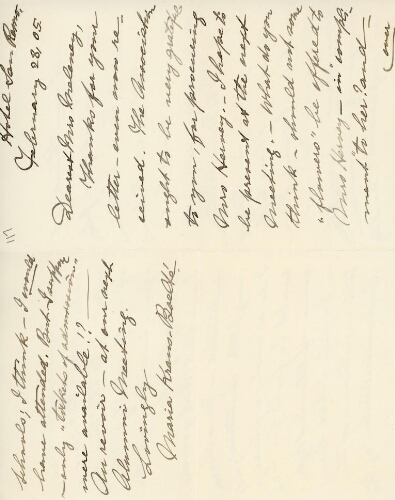 Hotel San Remo.
February 28, '05.
Dearest Mrs Mulaney,
Thanks for your
letter – even now re-
ceived. The Association
ought to be very grateful
to you for procuring
Mrs Henry. – I hope to
be present at the next
Meeting. – What do you
think – should not some
"flowers" be offered to
Mrs Henry – in compli-
ment to her? and –
over
117
thanks, I think – I would
have attended. But I suppose
– only "tickets of admission"
were available!! –
Au revoir – at our next
Alumni Meeting.
Lovingly
Maria